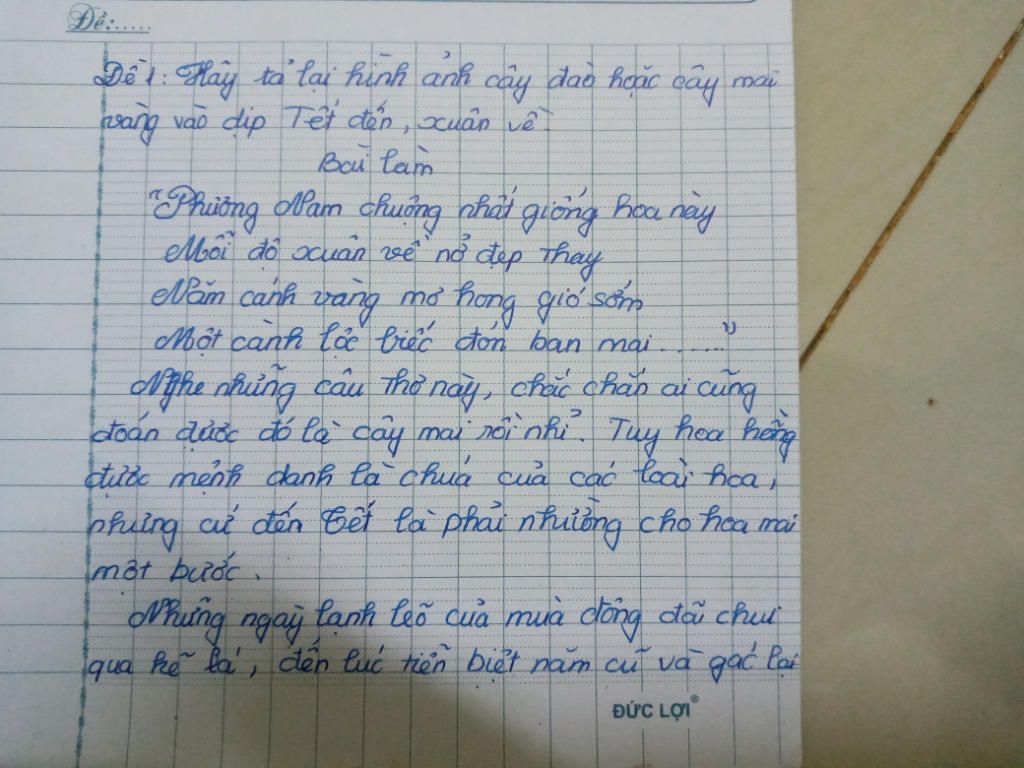 Đề:.....
Đề 1: Hãy tả lại hình ảnh cây đào hoặc cây mai
vàng vào dịp Tết đến, xuân về.
Bài làm
"Phương Nam chuộng nhất giống hoa này
Mỗi độ xuân về nở đẹp thay
Năm cánh vàng mơ hong gió sớm
Một cành lộc biếc đón ban mai......."
Nghe những câu thơ này, chắc chắn ai cũng
đoán được đó là cây mai rồi nhỉ. Tuy hoa hồng
được mệnh danh là chúa của các loài hoa,
nhưng cứ đến Tết là phải nhường cho hoa mai
một bước.
Những ngày lạnh lẽo của mùa đông đã chui
qua kẽ lá, đến lúc tiễn biệt năm cũ và gác lại
ĐỨC LỢI®